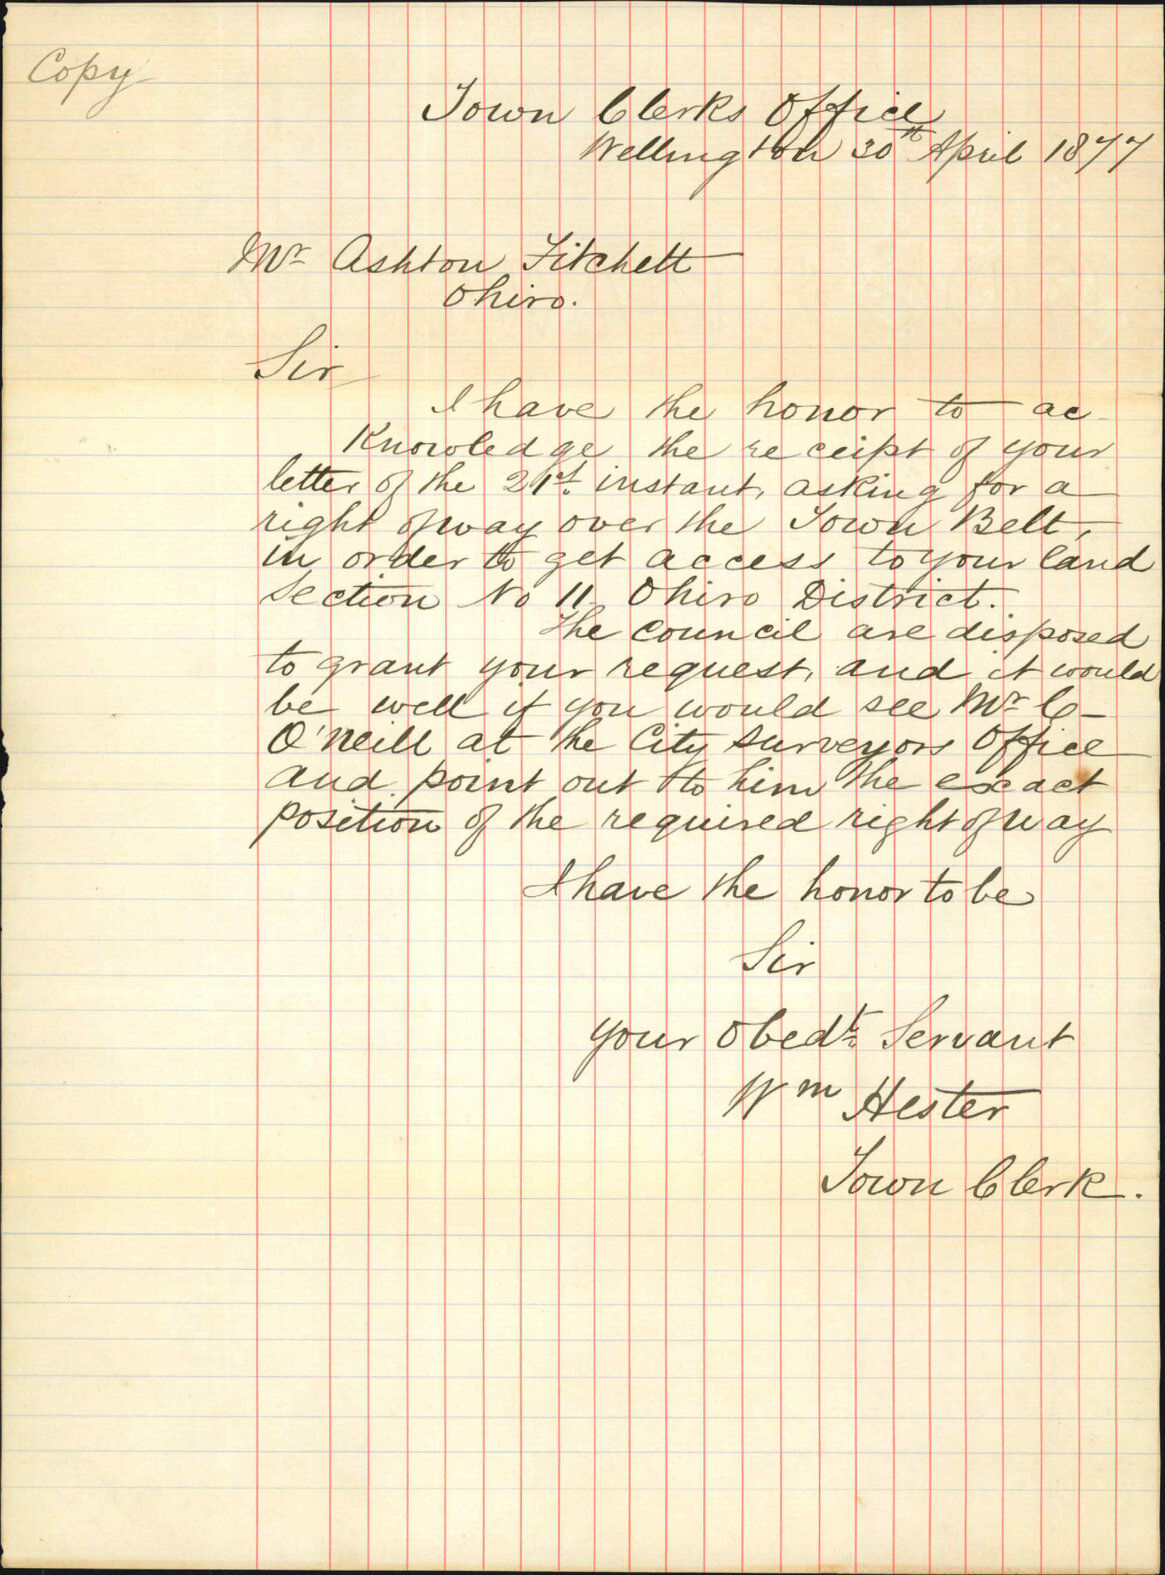 Copy
Town Clerks Office
Wellington 30th April 1877
Mr Ashton Fitchett
Ohiro.
Sir
I have the honor to ac
Knowledge the receipt of your
letter of the 21st. instant, asking for a
right of way over the Town Belt,
in order to get access to your land
Section No 11 Ohiro District.
The Council are disposed
to grant your request, and it would
be well if you would see Mr C
O'Neill at the City Surveyors Office
and point out to him the exact
position of the required right of way
I have the honor to be
Sir
your Obedt. Servant
Wm Hester
Town Clerk.